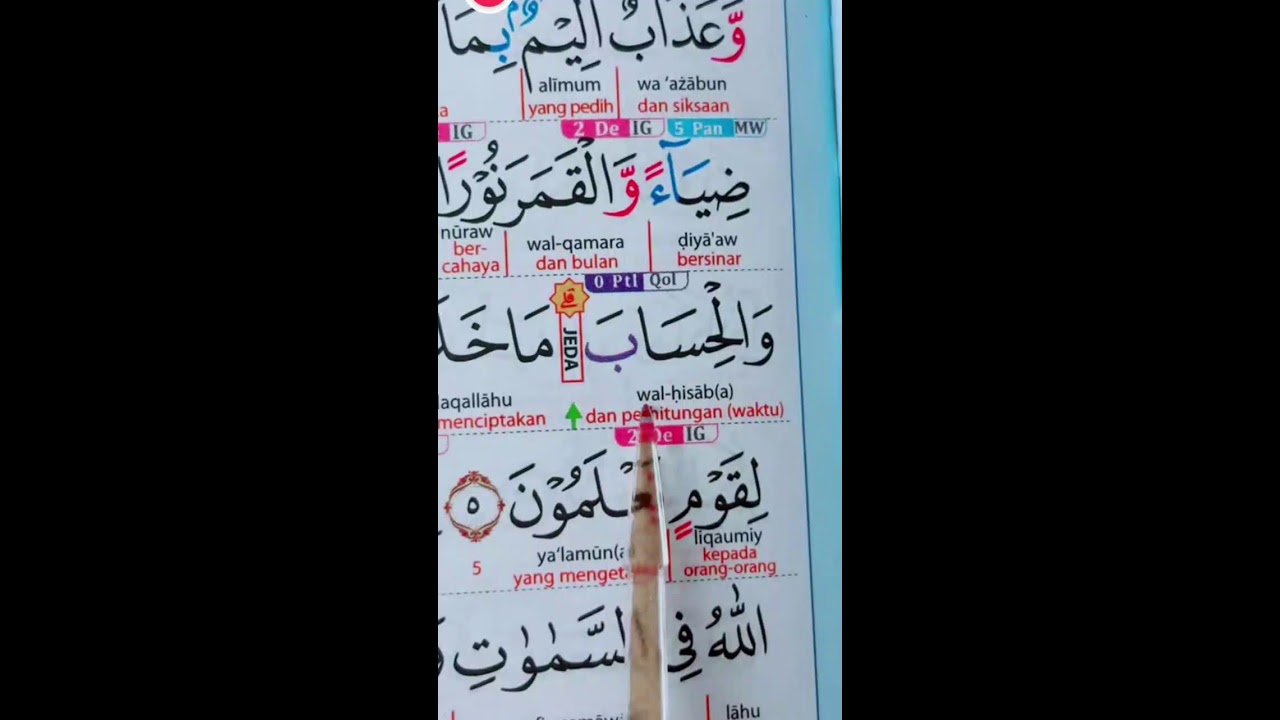 وَّعَذَابٌ اَلِيْمٌۢ بِمَا
wa ‘ażābun alīmum
dan siksaan yang pedih
5 Pan MW 2 De IG IG
ضِيَاۤءً وَّالْقَمَرَ نُوْرًا
ḍiyā'aw wal-qamara nūraw
bersinar dan bulan ber-cahaya
0 Ptl Qol
وَالْحِسَابَۗ JEDA مَا
wal-ḥisāb(a) laqallāhu
dan perhitungan (waktu) menciptakan
2 De IG
لِقَوْمٍ يَّعْلَمُوْنَ ٥
liqaumiy ya‘lamūn(a)
kepada orang-orang 5
اللّٰهُ فِى السَّمٰوٰتِ
lāhu